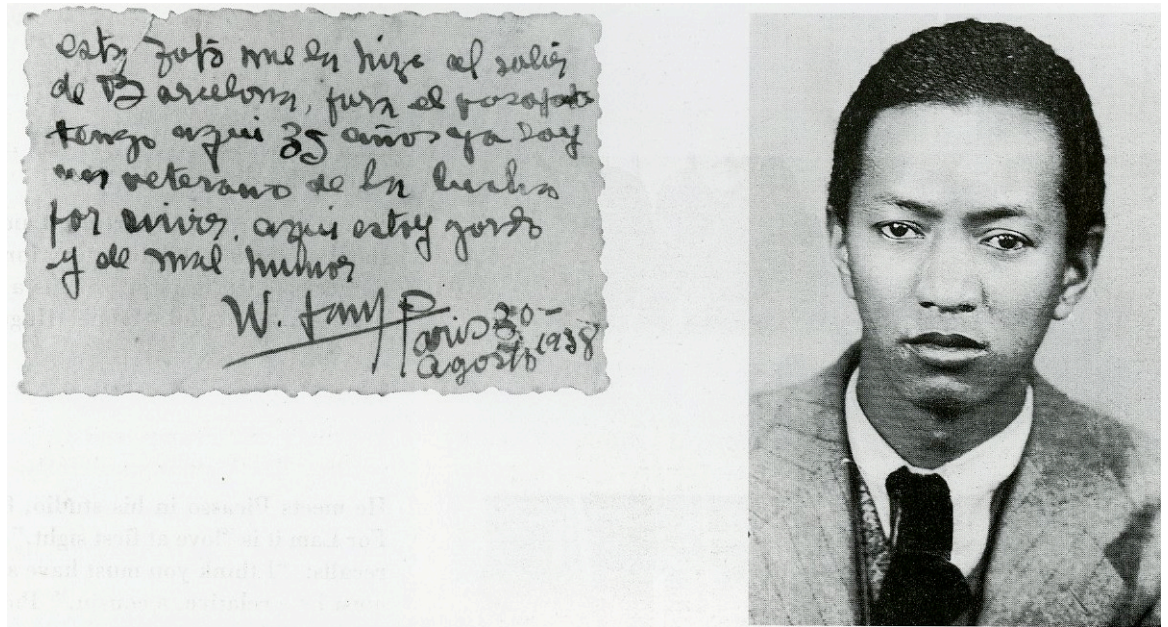 esta foto me la hize al salir
de Barcelona, para el pasaporte
tengo aqui 35 años ya soy
un veterano de la lucha
por vivir. aqui estoy gordo
y de mal humor
W. Lam Paris 30-
agosto 1938